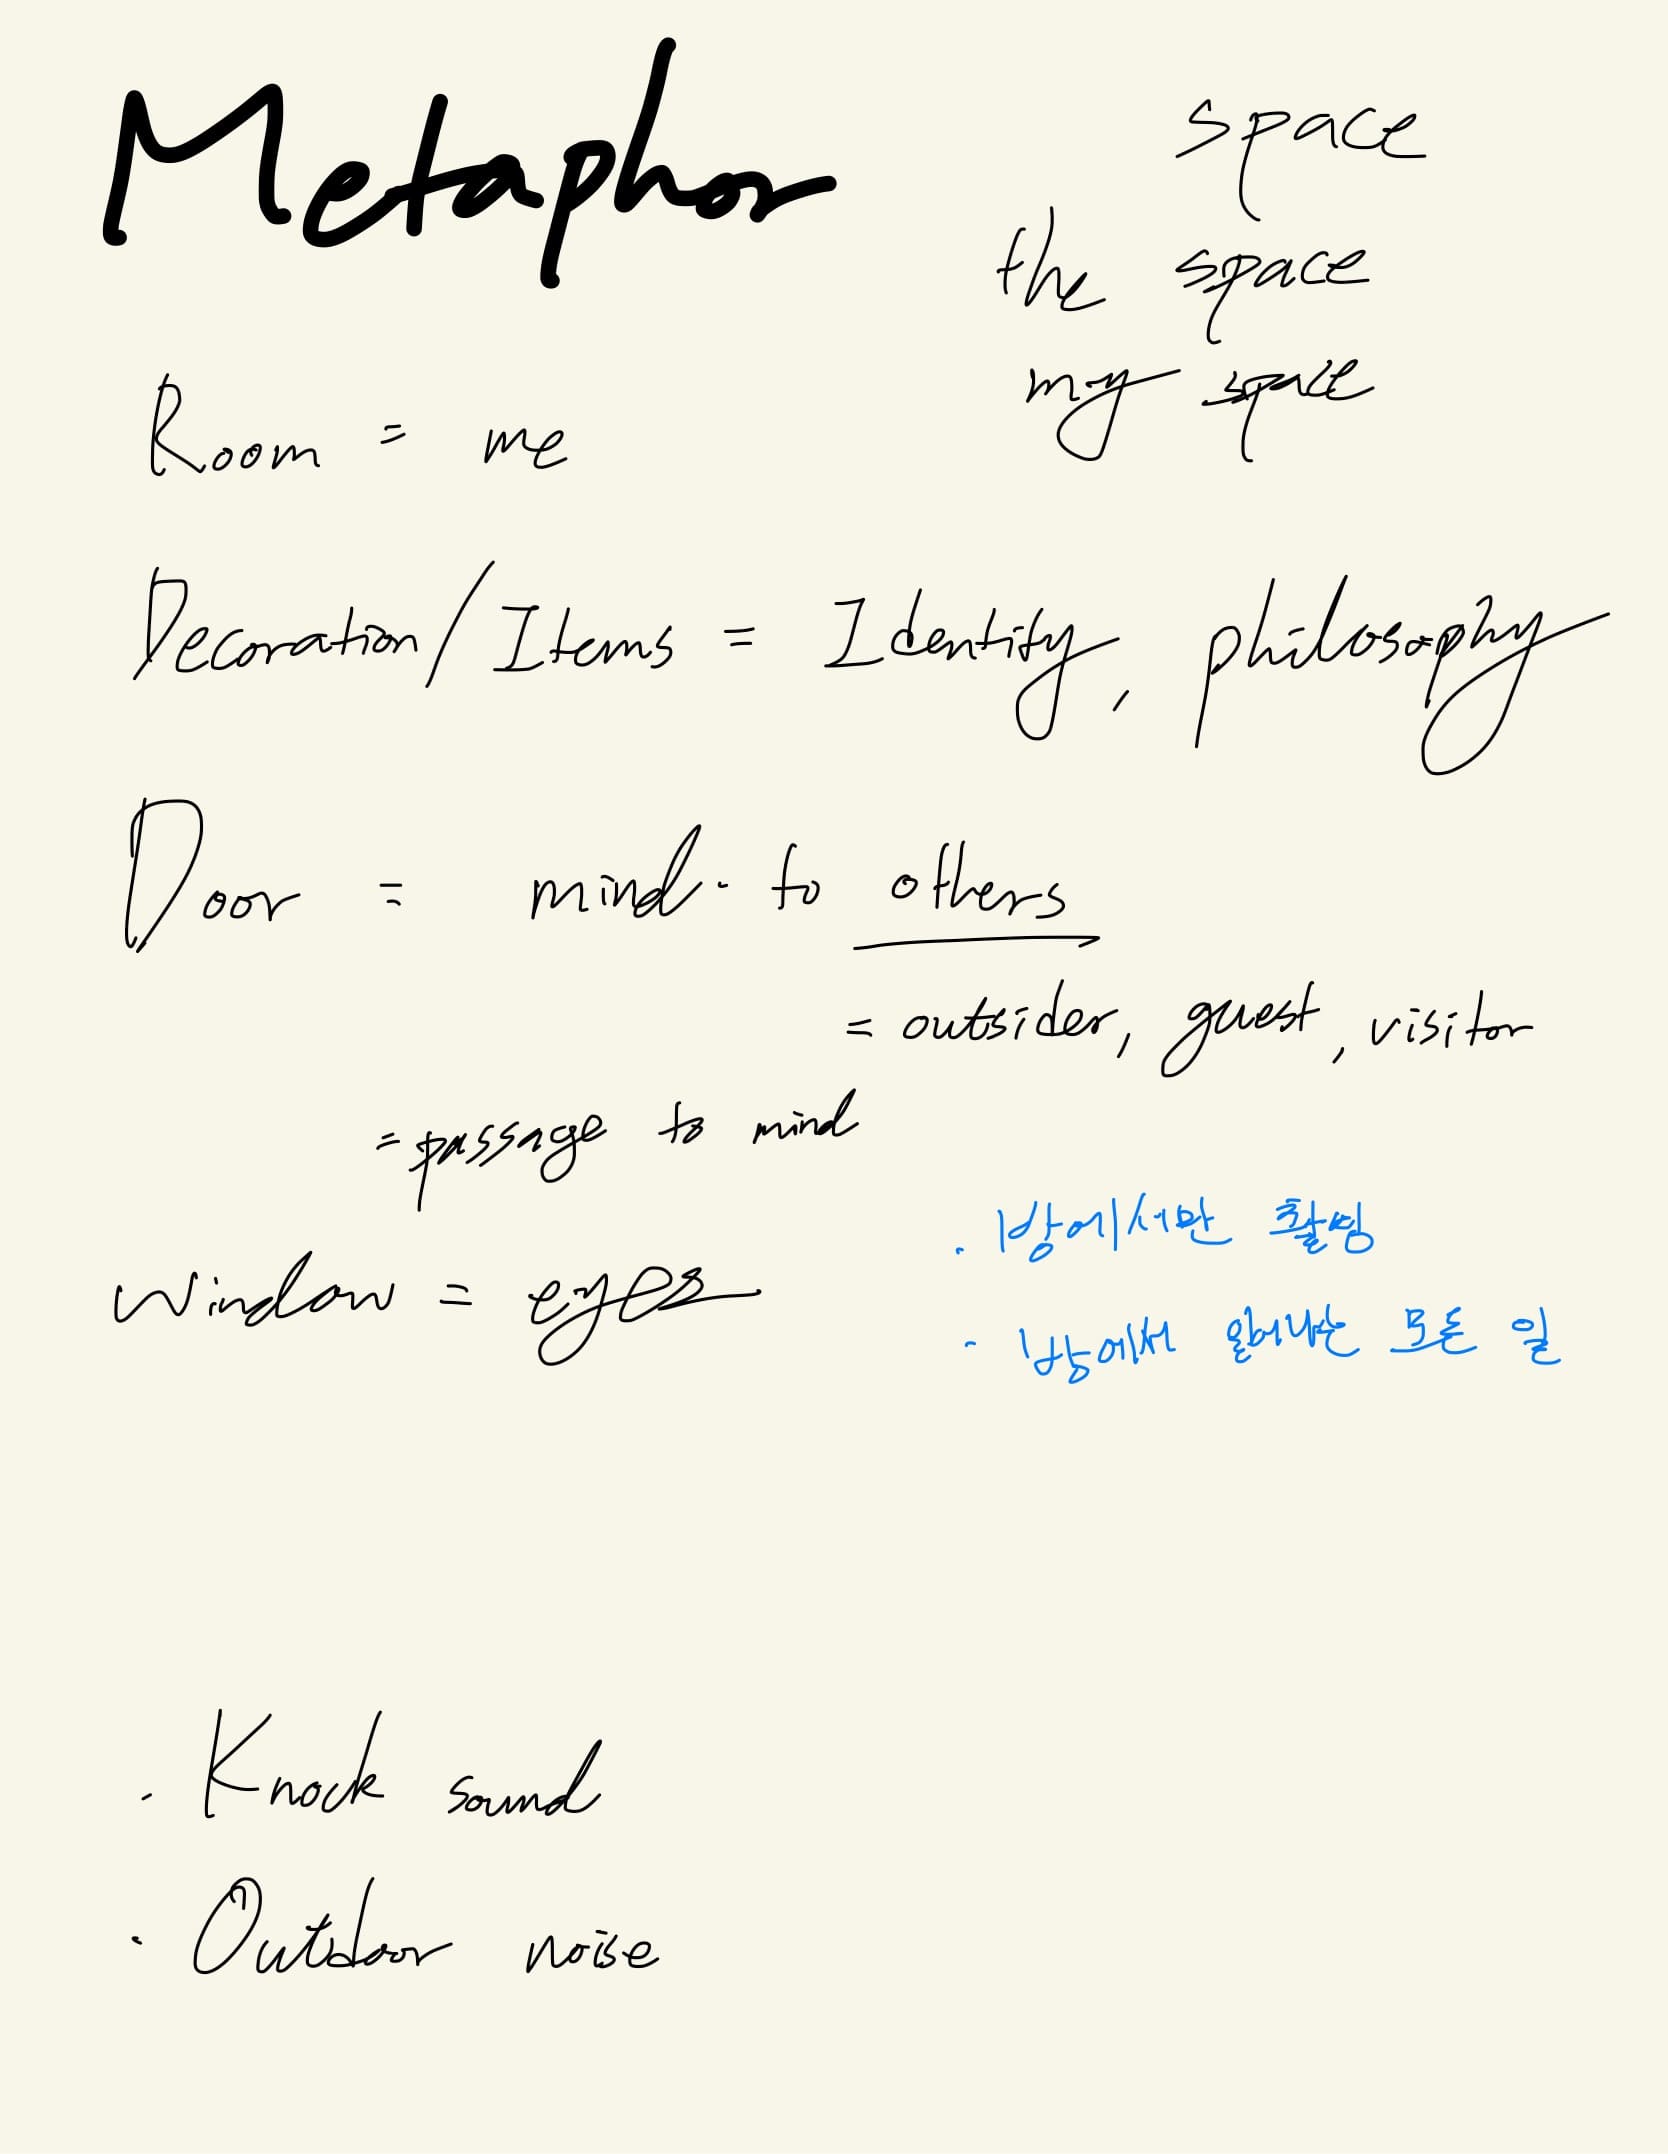 Metaphor
space
the space
my space
Room = me
Decoration/Items = Identity, philosophy
Door = mind. to others
= outsider, guest, visitor
= passage to mind
· 방에서만 촬영
window = eyes
· 방에서 일어나는 모든 일
· Knock sound
· Outdoor noise